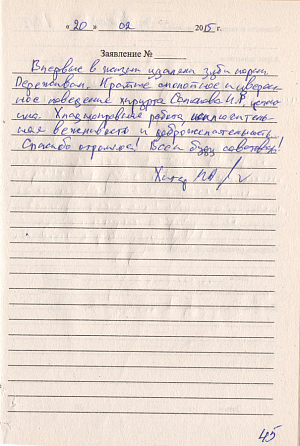 «20» 02 2015 г.
Заявление №
Впервые в жизни удаляли зуб
Переживал. Крайне спокойное и уверен-
ное поведение хирурга
Хладнокровная работа исключитель-
ная вежливость и доброжелательность
Спасибо огромное! Всем буду советовать!
45